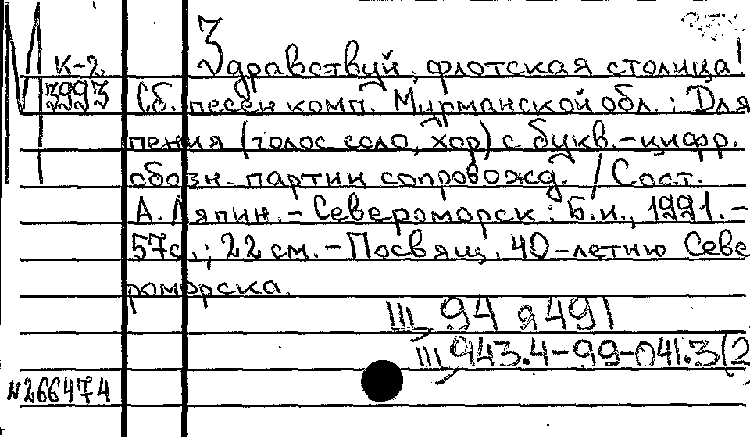 К-2 Здравствуй, флотская столица!
3993 Сб. песен комп. Мурманской обл.: Для
пения (голос соло, хор) с букв.-цифр.
обозн. партии сопровожд. / Сост.
А. Ляпин. - Североморск: Б.и., 1991. -
57с.; 22 см. - Посвящ. 40-летию Севе
роморска.
III, 94 я 491
III, 943.4-99-041.3(2
N266474